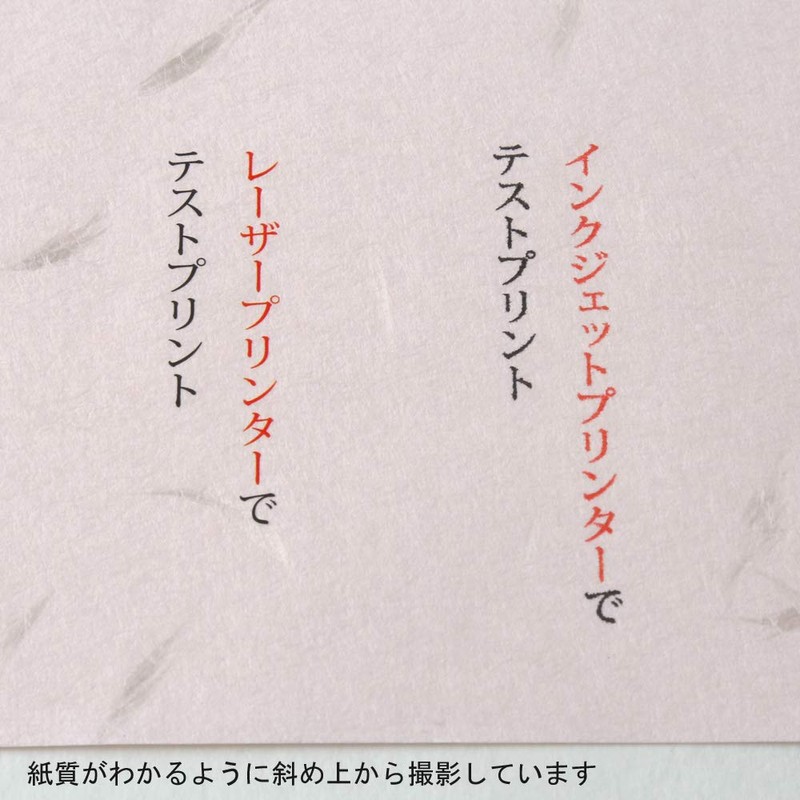 インクジェットプリンターで
テストプリント
レーザープリンターで
テストプリント
紙質がわかるように斜め上から撮影しています